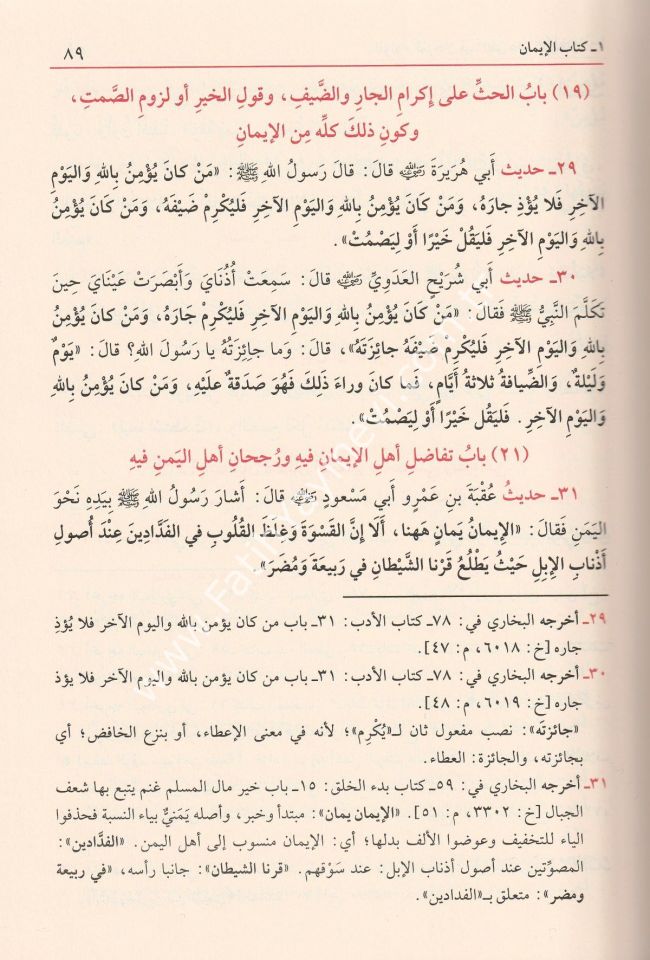 ١ـ كتاب الإيمان
٨٩
(١٩) بابُ الحثِّ على إكرامِ الجارِ والضَّيفِ، وقولِ الخيرِ أو لزومِ الصَّمتِ،
وكونِ ذلكَ كلِّه مِن الإيمانِ
٢٩ـ حديث أَبي هُرَيرَةَ ﷺ قالَ: قالَ رَسولُ اللهِ ﷺ: «مَنْ كانَ يُؤْمِنُ بِاللهِ وَاليَوْمِ
الآخِرِ فَلا يُؤْذِ جارَهُ، وَمَنْ كَانَ يُؤْمِنُ بِاللهِ وَاليومِ الآخِرِ فَليُكْرِمْ ضَيْفَهُ، وَمَنْ كَانَ يُؤْمِنُ
بِاللهِ وَاليَوْمِ الآخِرِ فَليَقُلْ خَيْرًا أَوْ لِيَصْمُتْ».
٣٠ـ حديث أَبي شُرَيْحٍ العَدَويِّ قالَ: سَمِعَتْ أُذُنَايَ وَأَبْصَرَتْ عَيْنَايَ حِينَ
تَكَلَّمَ النَّبيُّ ﷺ فَقالَ: «مَنْ كَانَ يُؤْمِنُ بِاللهِ وَاليَوْمِ الآخِرِ فَليُكْرِمْ جَارَهُ، وَمَنْ كانَ يُؤْمِنُ
بِاللهِ وَاليَوْمِ الآخِرِ فَليُكْرِمْ ضَيْفَهُ جائِزَتَهُ»، قالَ: وَما جائِزَتُهُ يا رَسولَ اللهِ؟ قالَ: «يَوْمٌ
وَلَيْلَةٌ، وَالضِّيافَةُ ثلاثةُ أَيَّامٍ، فَما كانَ وراءَ ذَلِكَ فَهُوَ صَدَقةٌ علَيْهِ، وَمَنْ كَانَ يُؤْمِنُ بِاللهِ
وَاليَوْمِ الآخِرِ. فَليَقُلْ خَيْرًا أَوْ لِيَصْمُتْ».
(٢١) بابُ تفاضلِ أهلِ الإيمانِ فيهِ ورُجحانِ أهلِ اليَمنِ فيهِ
٣١ـ حديثُ عُقْبَةَ بنِ عَمْرٍو أَبي مَسْعودٍ قالَ: أَشارَ رَسُولُ اللهِ ﷺ بِيَدِهِ نَحْوَ
اليَمَنِ فَقالَ: «الإيمانُ يَمانٍ هَهنا، أَلَا إِنَّ القَسْوَةَ وَغِلَظَ القُلوبِ في الفَدَّادِينَ عِنْدَ أُصولِ
أَذْنابِ الإبِلِ حَيْثُ يَطْلُعُ قَرْنا الشَّيْطانِ في رَبيعَةَ وَمُضَرَ».
٢٩ـ أخرجه البخاري في: ٧٨ـ كتاب الأدب: ٣١ـ باب من كان يؤمن بالله واليوم الآخر فلا يُؤذِ
جاره [خ: ٦٠١٨، م: ٤٧].
٣٠ـ أخرجه البخاري في: ٧٨ـ كتاب الأدب: ٣١ـ باب من كان يؤمن بالله واليوم الآخر فلا يؤذ
جاره [خ: ٦٠١٩، م: ٤٨].
«جائزتَه»: نصب مفعول ثان لـ«يُكْرِم»؛ لأنه في معنى الإعطاء، أو بنزع الخافض؛ أي
بجائزته، والجائزة: العطاء.
٣١ـ أخرجه البخاري في: ٥٩ـ كتاب بدء الخلق: ١٥ـ باب خير مال المسلم غنم يتبع بها شعف
الجبال [خ: ٣٣٠٢، م: ٥١]. «الإيمان يمان»: مبتدأ وخبر، وأصله يَمَنيٌّ بياء النسبة فحذفوا
الياء للتخفيف وعوضوا الألف بدلها؛ أي: الإيمان منسوب إلى أهل اليمن. «الفدَّادين»:
المصوّتين عند أصول أذناب الإبل: عند سَوْقهم. «قرنا الشيطان»: جانبا رأسه، «في ربيعة
ومضر»: متعلق بـ«الفدادين».